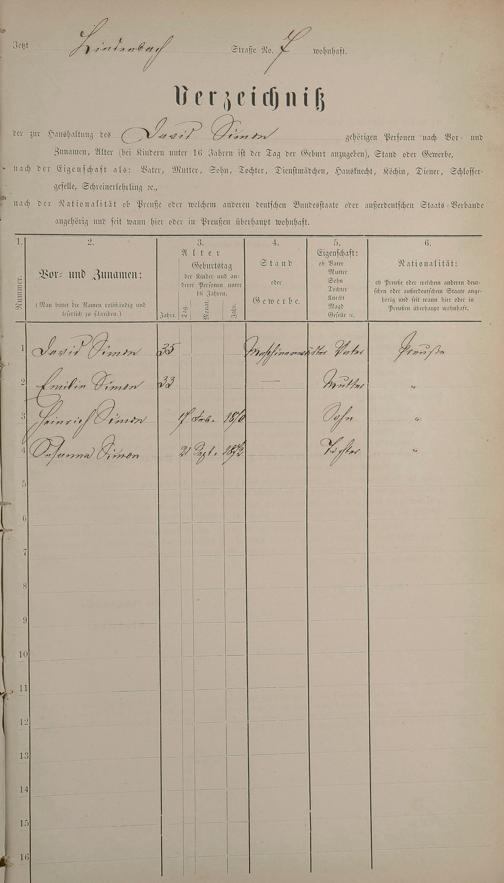 Jetzt Lindenbach Straße No. 7 wohnhaft.
Verzeichniß
der zur Haushaltung des David Simon gehörigen Personen nach Vor- und
Zunamen, Alter (bei Kindern unter 16 Jahren ist der Tag der Geburt anzugeben), Stand oder Gewerbe,
nach der Eigenschaft als: Vater, Mutter, Sohn, Tochter, Dienstmädchen, Hausknecht, Köchin, Diener, Schlosser-
geselle, Schreinerlehrling ꝛc.,
nach der Nationalität ob Preuße oder welchem anderen deutschen Bundesstaate oder außerdeutschen Staats-Verbande
angehörig und seit wann hier oder in Preußen überhaupt wohnhaft.
1. 2. 3. 4. 5. 6.
Nummer.
Vor- und Zunamen:
(Man bittet die Namen vollständig und
leserlich zu schreiben.)
Alter
Geburtstag
der Kinder und an-
derer Personen unter
16 Jahren.
Jahre. Tag. Monat. Jahr.
Stand
oder
Gewerbe.
Eigenschaft:
ob Vater
Mutter
Sohn
Tochter
Knecht
Magd
Geselle ꝛc.
Nationalität:
ob Preuße oder welchem anderen deut-
schen oder außerdeutschen Staate ange-
hörig und seit wann hier oder in
Preußen überhaupt wohnhaft.
1 David Simon 35 Vater Preuße
2 Emilie Simon 33 — Mutter "
3 Heinrich Simon 17 Feb. Sohn "
4 Susanna Simon 21 Sept. Tochter "
5
6
7
8
9
10
11
12
13
14
15
16